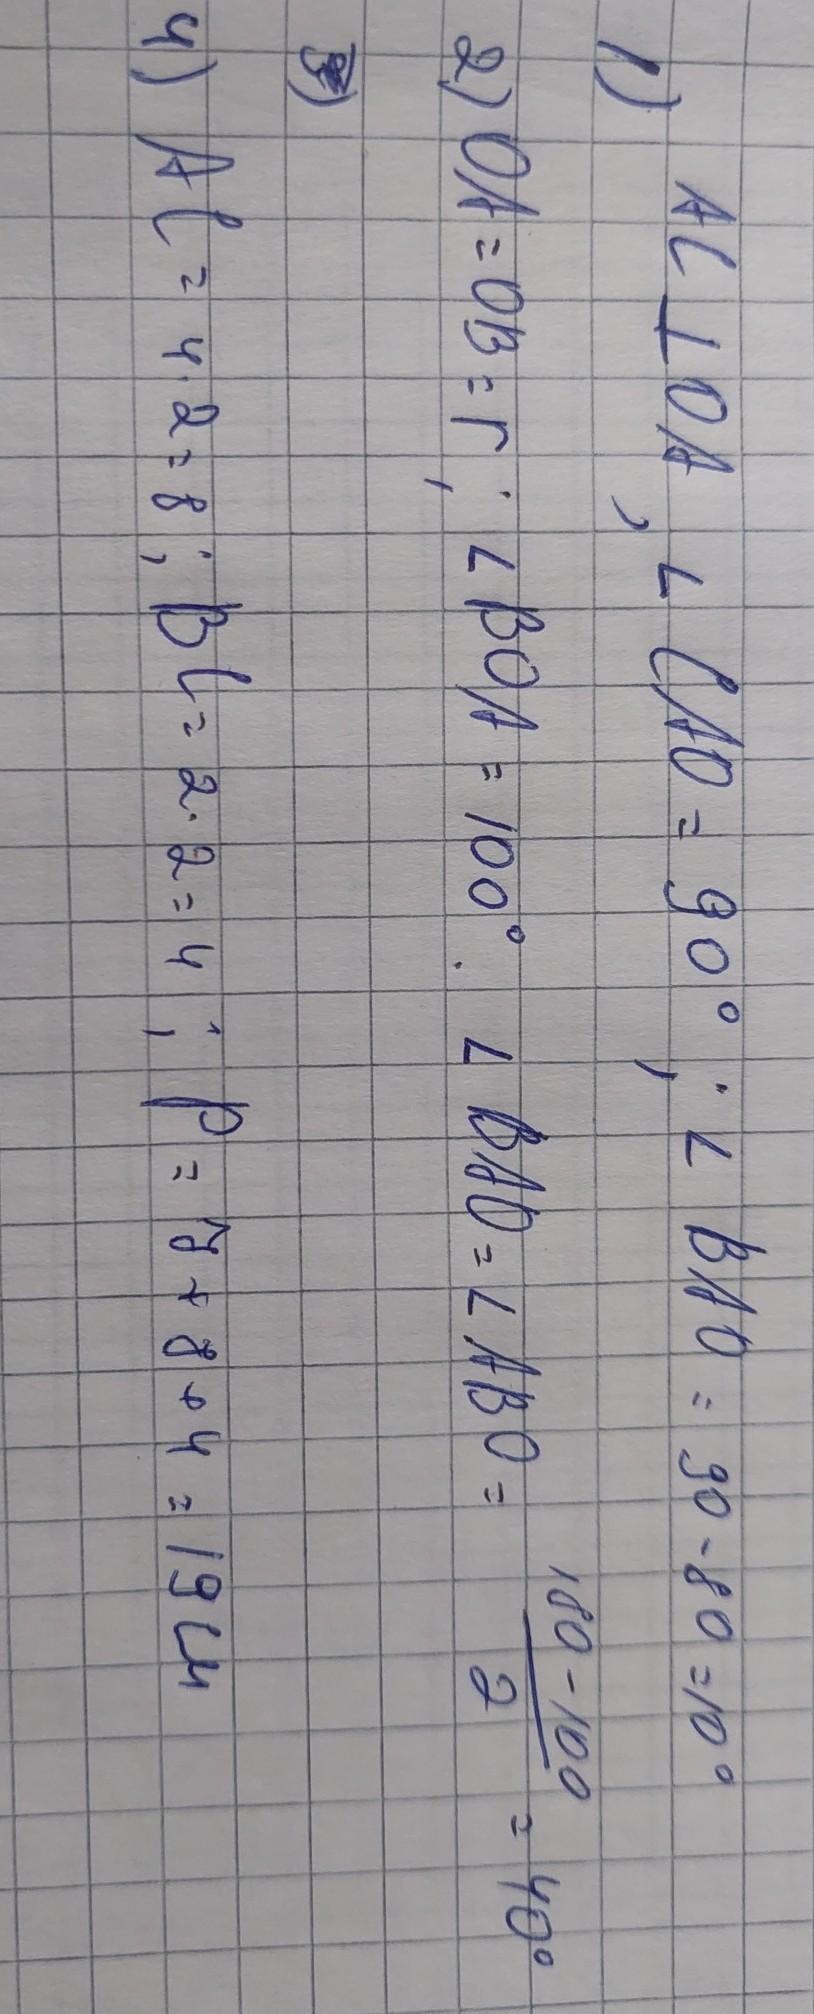 1) AC ⊥ OA, ∠ CAO = 90°; ∠ BAO = 90 - 80 = 10°
2) OA = OB = r; ∠ BOA = 100°. ∠ BAO = ∠ ABO = (180 - 100)/2 = 40°
3)
4) AC = 4·2 = 8; BC = 2·2 = 4; P = 7 + 8 + 4 = 19 см